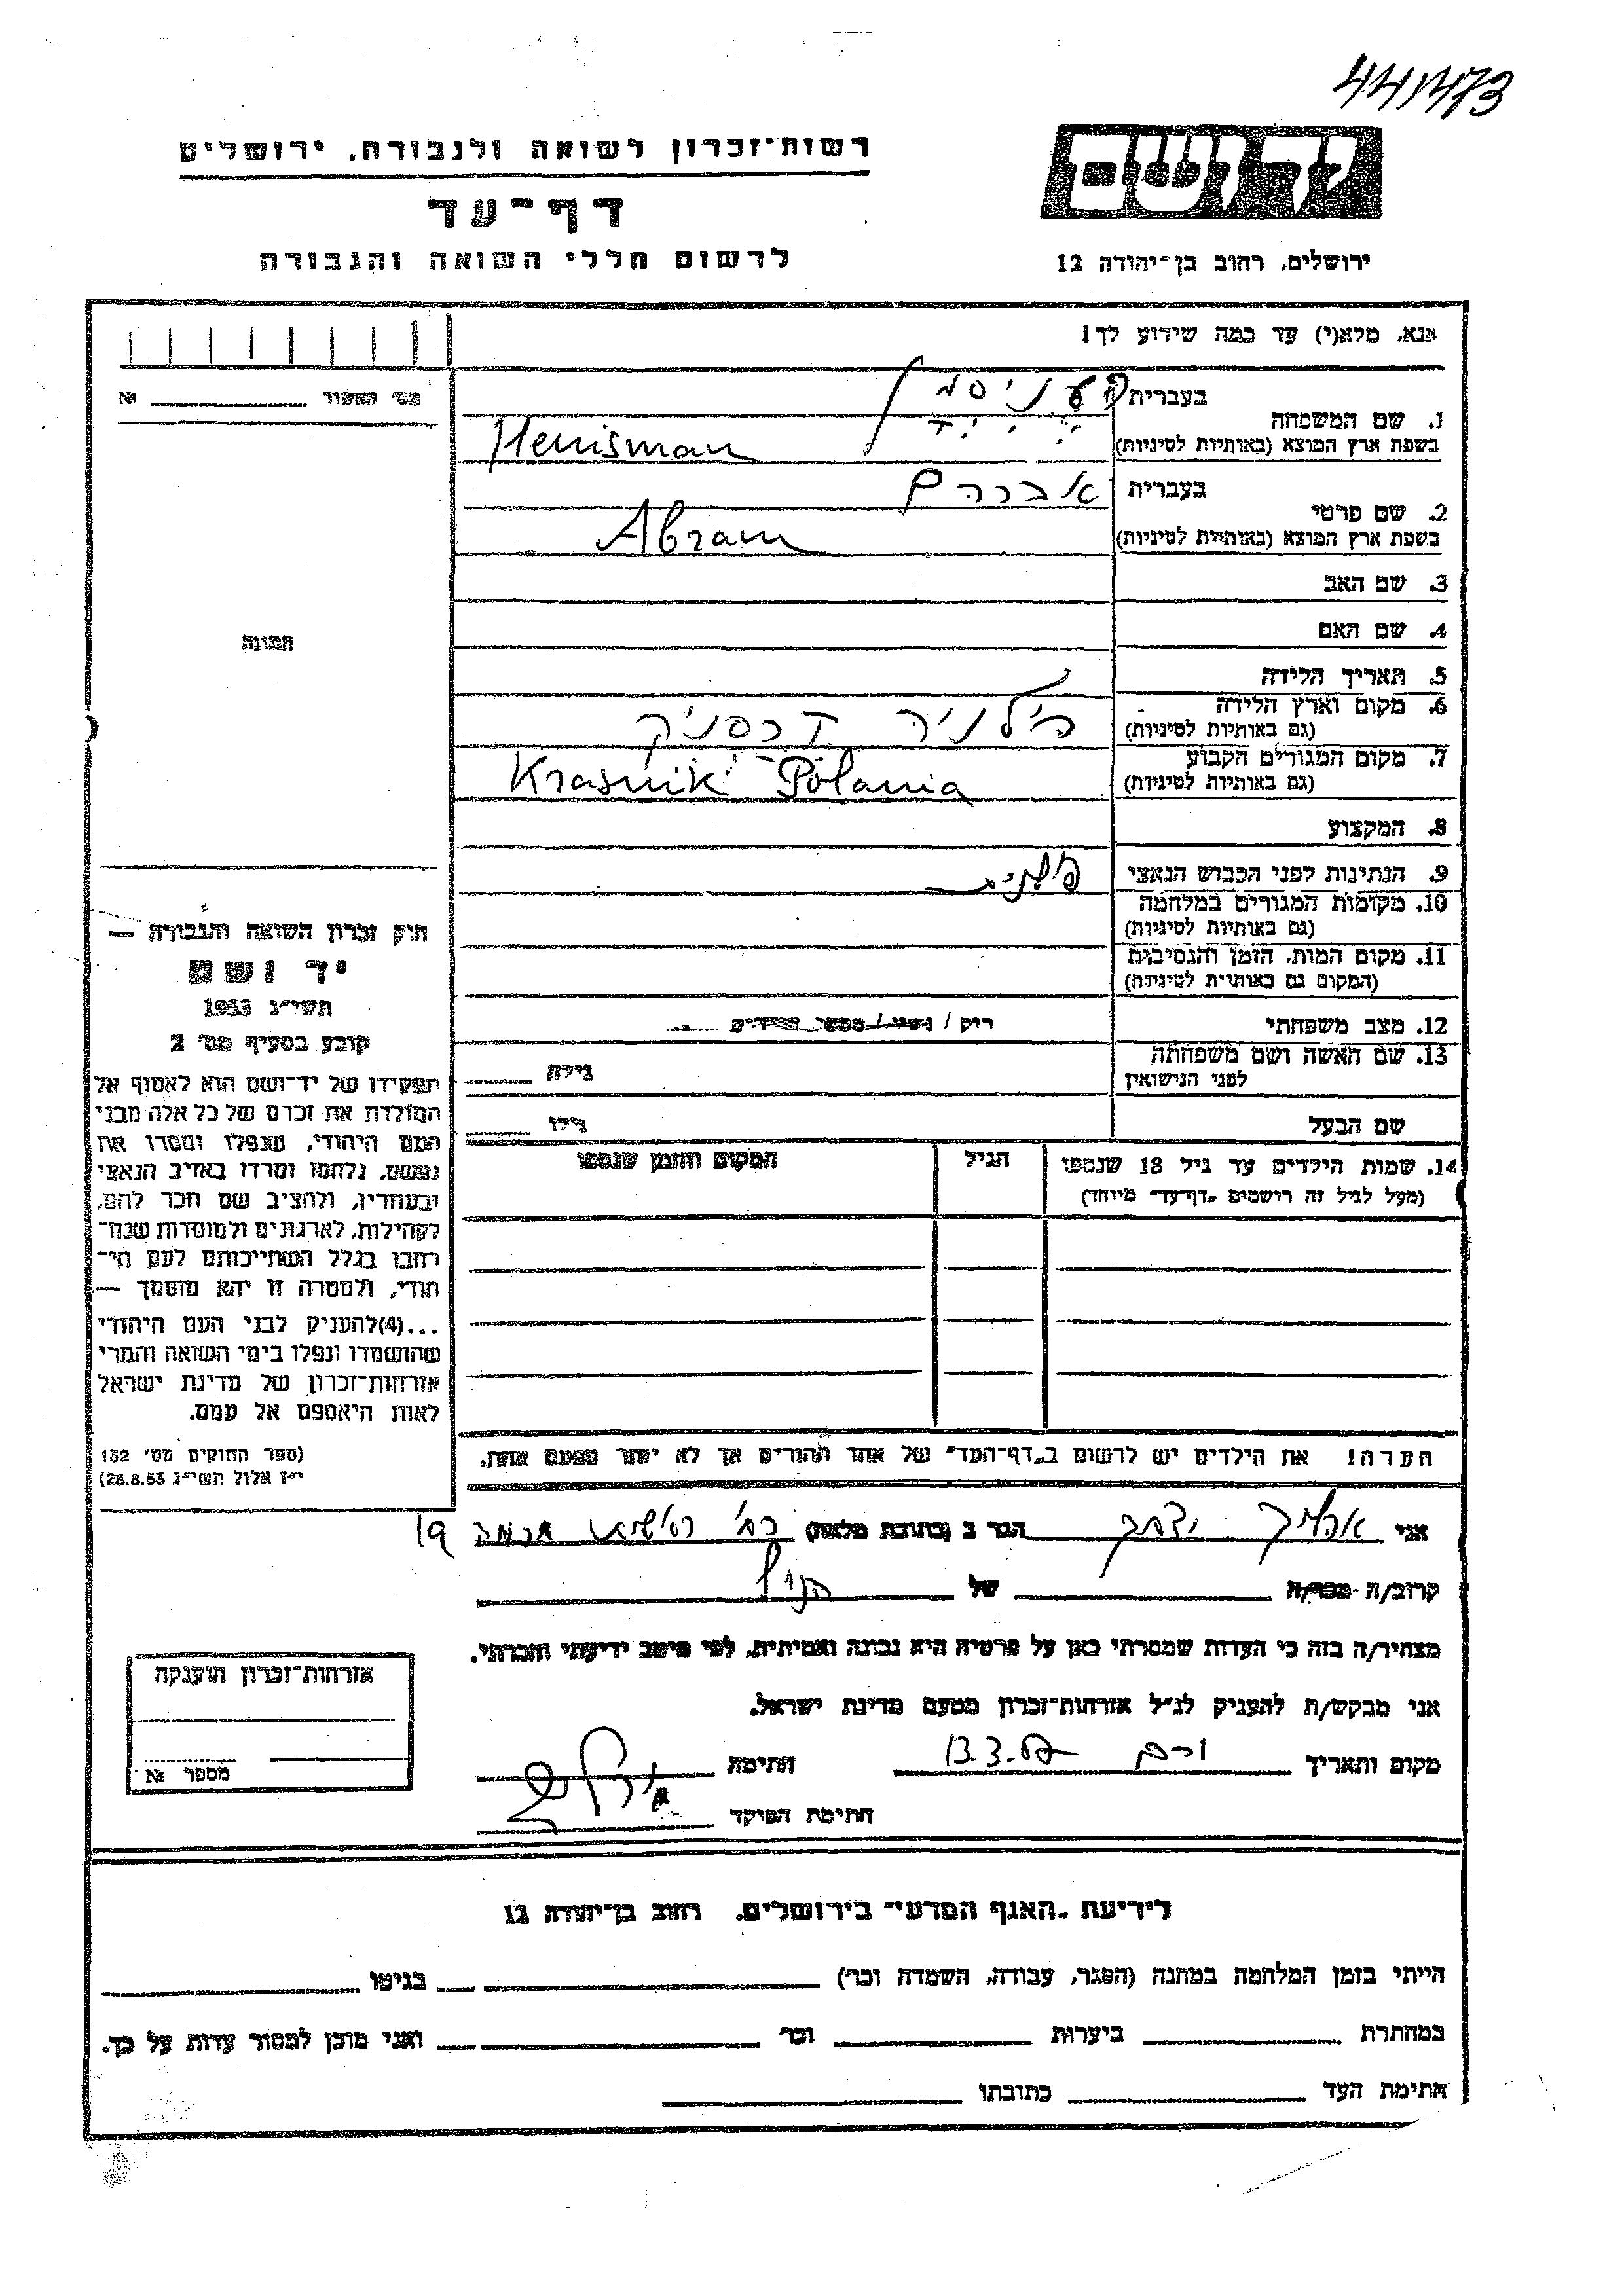 441473
רשות-זכרון לשואה ולגבורה, ירושלים
דף-עד
לרשום חללי השואה והגבורה
יד ושם
ירושלים, רחוב בן-יהודה 12
אנא, מלא(י) עד כמה שידוע לך!
מס׳ האשור № 
1. שם המשפחה
בעברית
בשפת ארץ המוצא (באותיות לטיניות) Henisman
2. שם פרטי
בעברית אברהם
בשפת ארץ המוצא (באותיות לטיניות) Abram
3. שם האב
4. שם האם
תמונה
5. תאריך הלידה
6. מקום וארץ הלידה
(גם באותיות לטיניות)
7. מקום המגורים הקבוע
(גם באותיות לטיניות) Krasnik Polania
8. המקצוע
9. הנתינות לפני הכבוש הנאצי פולנית
10. מקומות המגורים במלחמה
(גם באותיות לטיניות)
11. מקום המות, הזמן והנסיבות
(המקום גם באותיות לטיניות)
12. מצב משפחתי רוק / נשוי / מספר הילדים
13. שם האשה ושם משפחתה
לפני הנישואין גילה
שם הבעל גילו
14. שמות הילדים עד גיל 18 שנספו הגיל המקום והזמן שנספו
(מעל לגיל זה רושמים „דף-עד״ מיוחד)
חוק זכרון השואה והגבורה —
יד ושם
תשי״ג 1953
קובע בסעיף מס׳ 2
תפקידו של יד-ושם הוא לאסוף אל
המולדת את זכרם של כל אלה מבני
העם היהודי, שנפלו ומסרו את
נפשם, נלחמו ומרדו באויב הנאצי
ובעוזריו, ולהציב שם וזכר להם,
לקהילות, לארגונים ולמוסדות שנח-
רבו בגלל השתייכותם לעם הי-
הודי, ולמטרה זו יהא מוסמך —
...(4)להעניק לבני העם היהודי
שהושמדו ונפלו בימי השואה והמרי
אזרחות-זכרון של מדינת ישראל
לאות היאספם אל עמם.
(ספר החוקים מס׳ 132
י״ז אלול תשי״ג 28.8.53)
הערה! את הילדים יש לרשום ב„דף-העד״ של אחד ההורים אך לא יותר מפעם אחת.
אני הגר ב (כתובת מלאה) 19
קרוב/ה מכר/ה של
מצהיר/ה בזה כי העדות שמסרתי כאן על פרטיה היא נכונה ואמיתית, לפי מיטב ידיעתי והכרתי.
אני מבקש/ת להעניק לנ״ל אזרחות-זכרון מטעם מדינת ישראל.
מקום ותאריך חתימה
חתימת הפוקד
אזרחות-זכרון הוענקה
מספר №
לידיעת „האגף המדעי״ בירושלים, רחוב בן-יהודה 12
הייתי בזמן המלחמה במחנה (הסגר, עבודה, השמדה וכו׳) בגיטו
במחתרת ביערות וכו׳ ואני מוכן למסור עדות על כך.
חתימת העד כתובתו